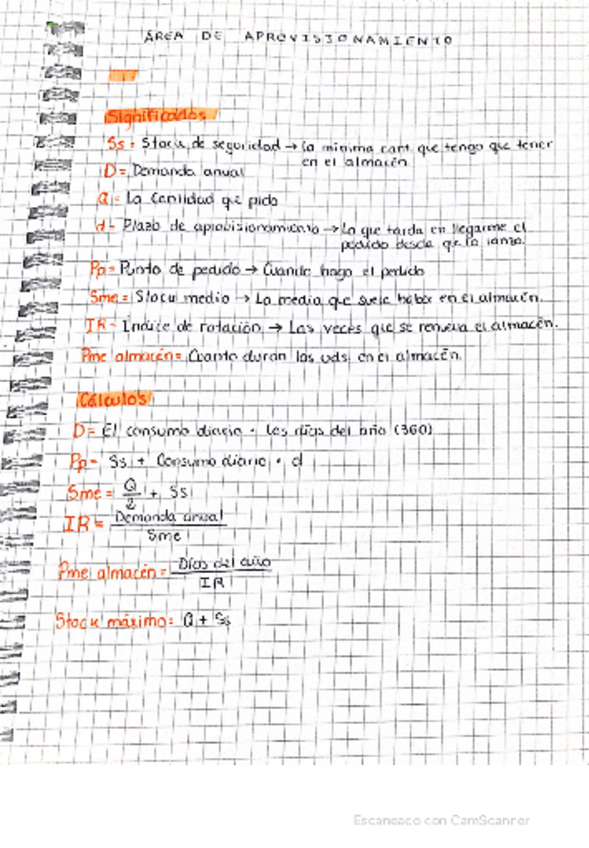 ÁREA DE APROVISIONAMIENTO
Significados
Ss = Stock de seguridad → la mínima cant. que tengo que tener
en el almacén
D = Demanda anual
Q = La cantidad que pido
d = Plazo de aprovisionamiento → Lo que tarda en llegarme el
pedido desde que lo lanzo.
Pp = Punto de pedido → Cuando hago el pedido
Sme = Stock medio → La media que suele haber en el almacén.
IR = Índice de rotación → Las veces que se renueva el almacén.
Pme almacén = Cuanto duran las uds. en el almacén.
Cálculos
D = El consumo diario · los días del año (360)
Pp = Ss + Consumo diario · d
Sme = Q/2 + Ss
IR = Demanda anual / Sme
Pme almacén = Días del año / IR
Stock máximo = Q + Ss
Escaneado con CamScanner